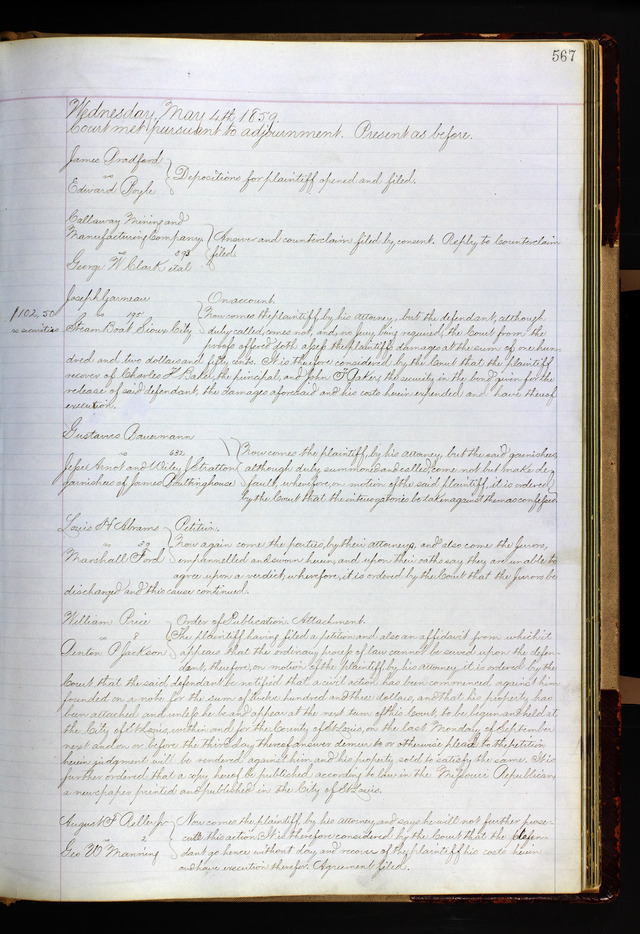 567
Wednesday May 4th 1859.
Court met pursuant to adjournment. Present as before.
James Bradford
vs
Edward Boyle
Depositions for plaintiff opened and filed.
Callaway Mining and
Manufacturing Company
vs
George W Clark et al
Answer and counterclaim filed by consent. Reply to Counterclaim
filed.
Joseph Garneau
vs 195
Steam Boat Sioux City
$102,50
vs securities
On account.
Now comes the plaintiff by his attorney, but the defendant, although
duly called, comes not, and, no jury being required, the Court from the
proofs offered doth assess the plaintiff's damage at the sum of one hun-
dred and two dollars and fifty cents. It is therefore considered by the Court that the plaintiff
recover of Charles H Baker the principal, and John Baker the security in the bond given for the
release of said defendant, the damages aforesaid and his costs herein expended and have thereof
execution.
Gustavus Bauermann
vs 632
Jesse Arnot and Wiley J Stratton
garnishees of James Paultinghouse
Now comes the plaintiff, by his attorney, but the said garnishees,
although duly summoned and called, come not but make de-
fault, wherefore, on motion of the said plaintiff, it is ordered
by the Court that the interrogatories be taken against them as confessed.
Louis H Abrams
vs 39
Marshall Ford
Petition.
Now again come the parties, by their attorneys, and also come the Jurors,
empannelled and sworn herein, and upon their oaths say they are unable to
agree upon a verdict, wherefore, it is ordered by the Court that the Jurors be
discharged and this cause continued.
William Price
vs 8
Denton P Jackson
Order of Publication. Attachment.
The plaintiff having filed a petition and also an affidavit from which it
appears that the ordinary process of law cannot be served upon the defen-
dant, therefore, on motion of the plaintiff by his attorney it is ordered by the
Court that the said defendant be notified that a civil action has been commenced against him
founded on a note for the sum of three hundred and three dollars, and that his property has
been attached and unless he be and appear at the next term of this Court, to be begun and held at
the City of St Louis, within and for the County of St Louis, on the last Monday of September
next and on or before the third day thereof answer demur to or otherwise plead to the petition
herein judgment will be rendered against him and his property sold to satisfy the same. It is
further ordered that a copy hereof be published according to law in the Missouri Republican,
a newspaper printed and published in the City of St Louis.
August F
vs 2
Geo W Manning
Now comes the plaintiff by his attorney, and says he will not further prose-
cute this action. It is therefore considered by the Court that the defen-
dant go hence without day and recover of the plaintiff his costs herein
and have execution therefor. Agreement filed.